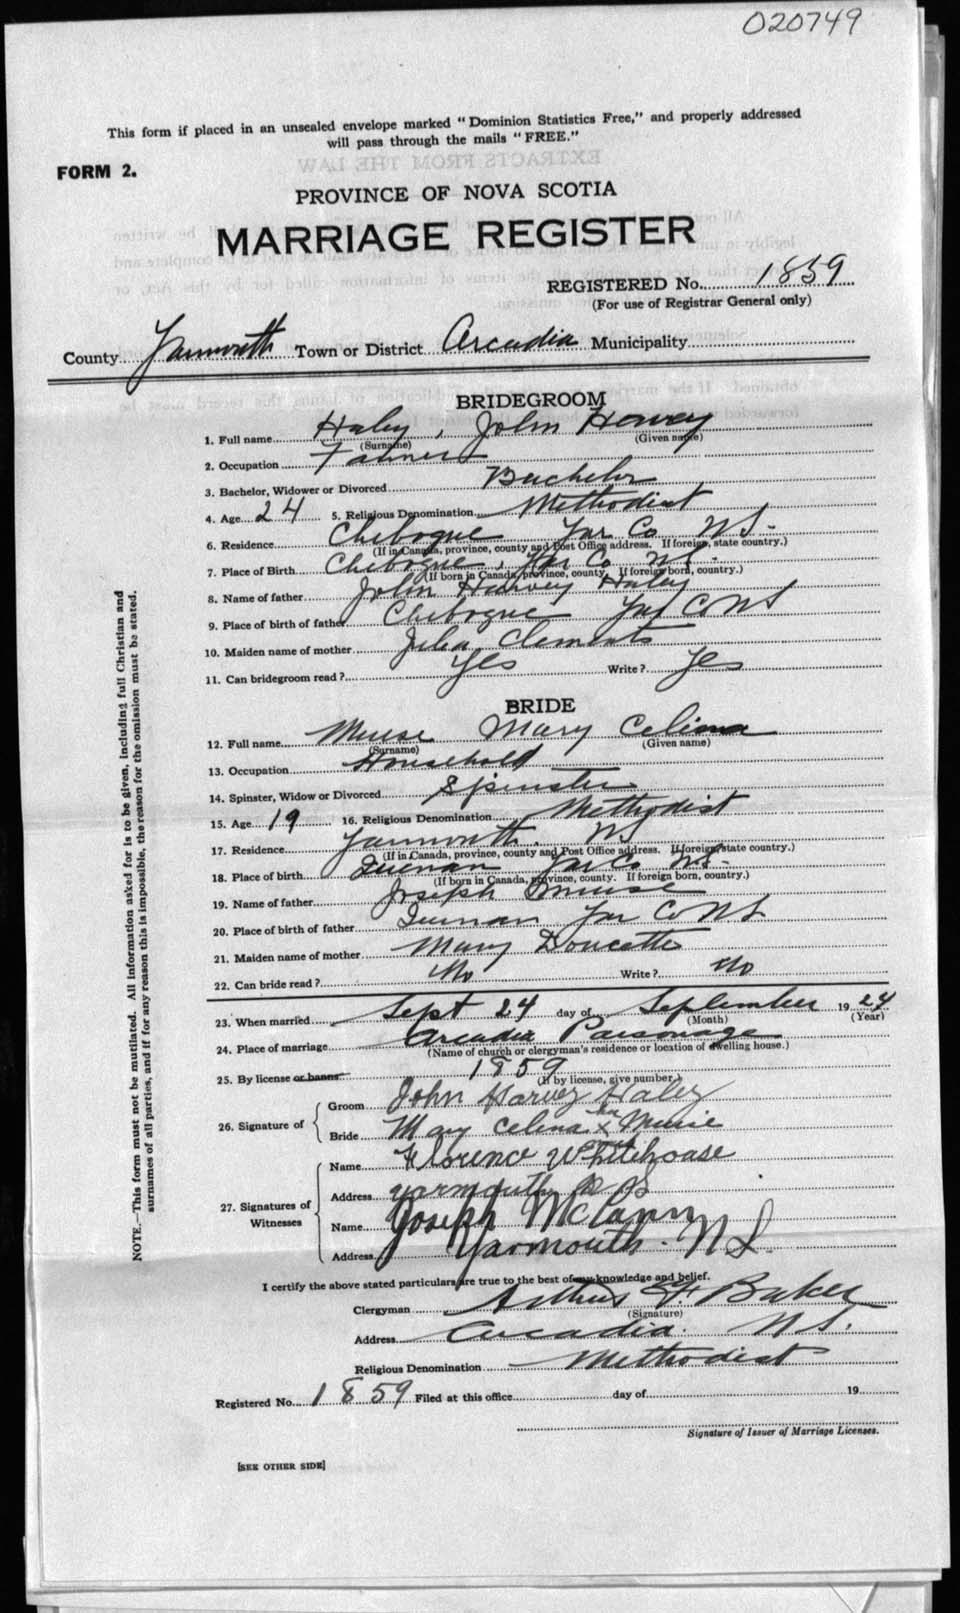 020749
This form if placed in an unsealed envelope marked "Dominion Statistics Free," and properly addressed
will pass through the mails "FREE."
FORM 2.
PROVINCE OF NOVA SCOTIA
MARRIAGE REGISTER
REGISTERED No. 1859
(For use of Registrar General only)
County Yarmouth Town or District Arcadia Municipality
BRIDEGROOM
1. Full name Haley, John Harvey
(Surname) (Given name)
2. Occupation Farmer
3. Bachelor, Widower or Divorced Bachelor
4. Age 24 5. Religious Denomination Methodist
6. Residence Chebogue Yar Co NS.
(If in Canada, province, county and Post Office address. If foreign, state country.)
7. Place of Birth Chebogue, Yar Co NS.
(If born in Canada, province, county. If foreign born, country.)
8. Name of father John Harvey Haley
9. Place of birth of father Chebogue Yar Co NS
10. Maiden name of mother Clements
11. Can bridegroom read? Yes Write? Yes
BRIDE
12. Full name Muise Mary Celina
(Surname) (Given name)
13. Occupation Household
14. Spinster, Widow or Divorced Spinster
15. Age 19 16. Religious Denomination Methodist
17. Residence Yarmouth. NS
(If in Canada, province, county and Post Office address. If foreign, state country.)
18. Place of birth Yar Co NS.
(If born in Canada, province, county. If foreign born, country.)
19. Name of father Joseph Muise
20. Place of birth of father Yar Co NS
21. Maiden name of mother Mary Doucette
22. Can bride read? No Write? No
23. When married Sept 24 day of September 1924
(Month) (Year)
24. Place of marriage Arcadia Parsonage
(Name of church or clergyman's residence or location of dwelling house.)
25. By license or banns 1859
(If by license, give number.)
26. Signature of
Groom John Harvey Haley
Bride Mary Celina her x Muise
27. Signatures of Witnesses
Name Florence Whitehouse
Address Yarmouth N S
Name Joseph McCann
Address Yarmouth. N S.
I certify the above stated particulars are true to the best of my knowledge and belief.
Clergyman Arthur F Baker
(Signature)
Address Arcadia. N.S.
Religious Denomination Methodist
Registered No. 1859 Filed at this office day of 19
Signature of Issuer of Marriage Licenses.
[SEE OTHER SIDE]
NOTE.—This form must not be mutilated. All information asked for is to be given, including full Christian and
surnames of all parties, and if for any reason this is impossible, the reason for the omission must be stated.